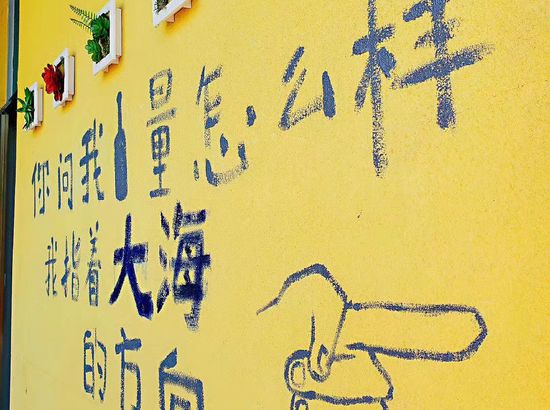 你问我量怎么样
我指着大海
的方向